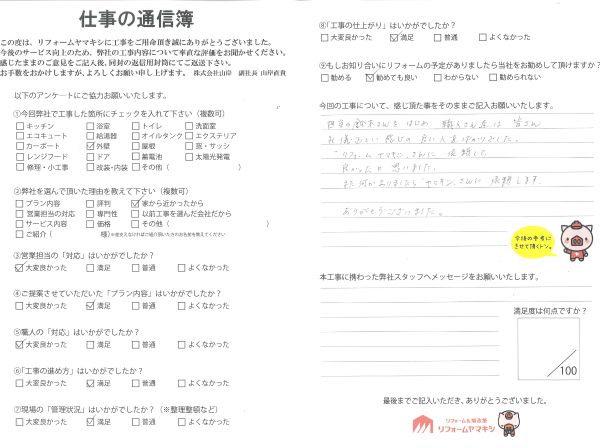 仕事の通信簿
この度は、リフォームヤマキシに工事をご用命頂き誠にありがとうございました。
今後のサービス向上のため、弊社の工事内容について率直な評価をお聞かせください。
感じたままのご意見をご記入後、同封の返信用封筒にてご返送下さい。
お手数をおかけしますが、よろしくお願い申し上げます。 株式会社山岸 副社長 山岸直貴
以下のアンケートにご協力お願いいたします。
①今回弊社で工事した箇所にチェックを入れて下さい（複数可）
□キッチン □浴室 □トイレ □洗面室
□エコキュート □給湯器 □オイルタンク □エクステリア
□カーポート ☑外壁 □屋根 □窓・サッシ
□レンジフード □ドア □蓄電池 □太陽光発電
□修理・小工事 □改装・内装 □その他（ ）
②弊社を選んで頂いた理由を教えて下さい（複数可）
□プラン内容 □評判 ☑家から近かったから
□営業担当の対応 □専門性 □以前工事を選んだ会社だから
□サービス内容 □価格 □その他（ ）
□ご紹介（ 様）※差支えなければご紹介頂いたお名前を教えてください
③営業担当の「対応」はいかがでしたか？
☑大変良かった □満足 □普通 □よくなかった
④ご提案させていただいた「プラン内容」はいかがでしたか？
□大変良かった ☑満足 □普通 □よくなかった
⑤職人の「対応」はいかがでしたか？
☑大変良かった □満足 □普通 □よくなかった
⑥「工事の進め方」はいかがでしたか？
□大変良かった ☑満足 □普通 □よくなかった
⑦現場の「管理状況」はいかがでしたか？（※整理整頓など）
□大変良かった ☑満足 □普通 □よくなかった
⑧「工事の仕上がり」はいかがでしたか？
□大変良かった ☑満足 □普通 □よくなかった
⑨もしお知り合いにリフォームの予定がありましたら当社をお勧めして頂けますか？
□勧める ☑勧めても良い □わからない □勧められない
今回の工事について、感じた事をそのままご記入お願いいたします。
担当の鈴木さんをはじめ 職人さん達は 皆さん
礼儀正しい 感じの良い人ばかりでした。
リフォームヤマキシさんに 依頼して
良かったと思いました。
また何かありましたら ヤマキシさんに 依頼します。
ありがとうございました。
今後の参考に
させて頂くトン。
本工事に携わった弊社スタッフへメッセージをお願いいたします。
満足度は何点ですか？
100
最後までご記入いただき、ありがとうございました。
リフォーム&増改築
リフォームヤマキシ